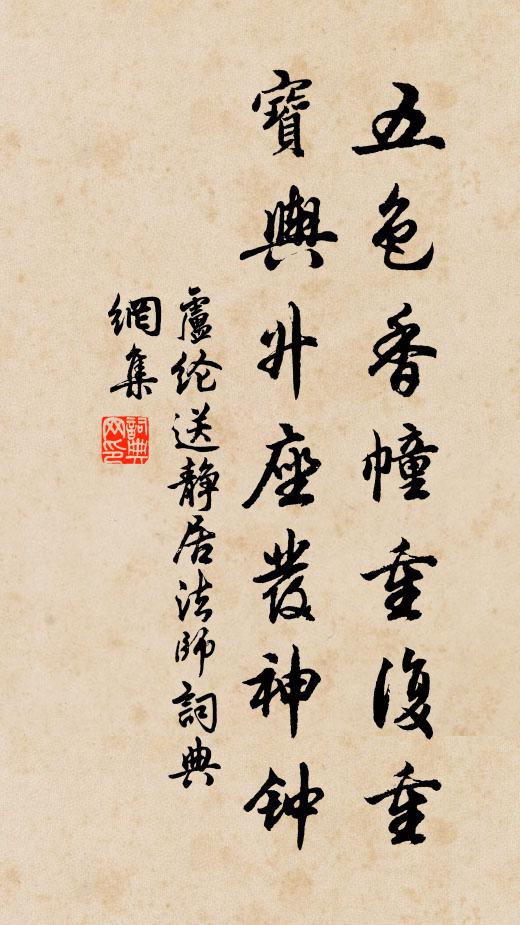 五色香幢重復重
寶輿升座發神钟
盧纶送静居法師詞典
網集
詞典網印